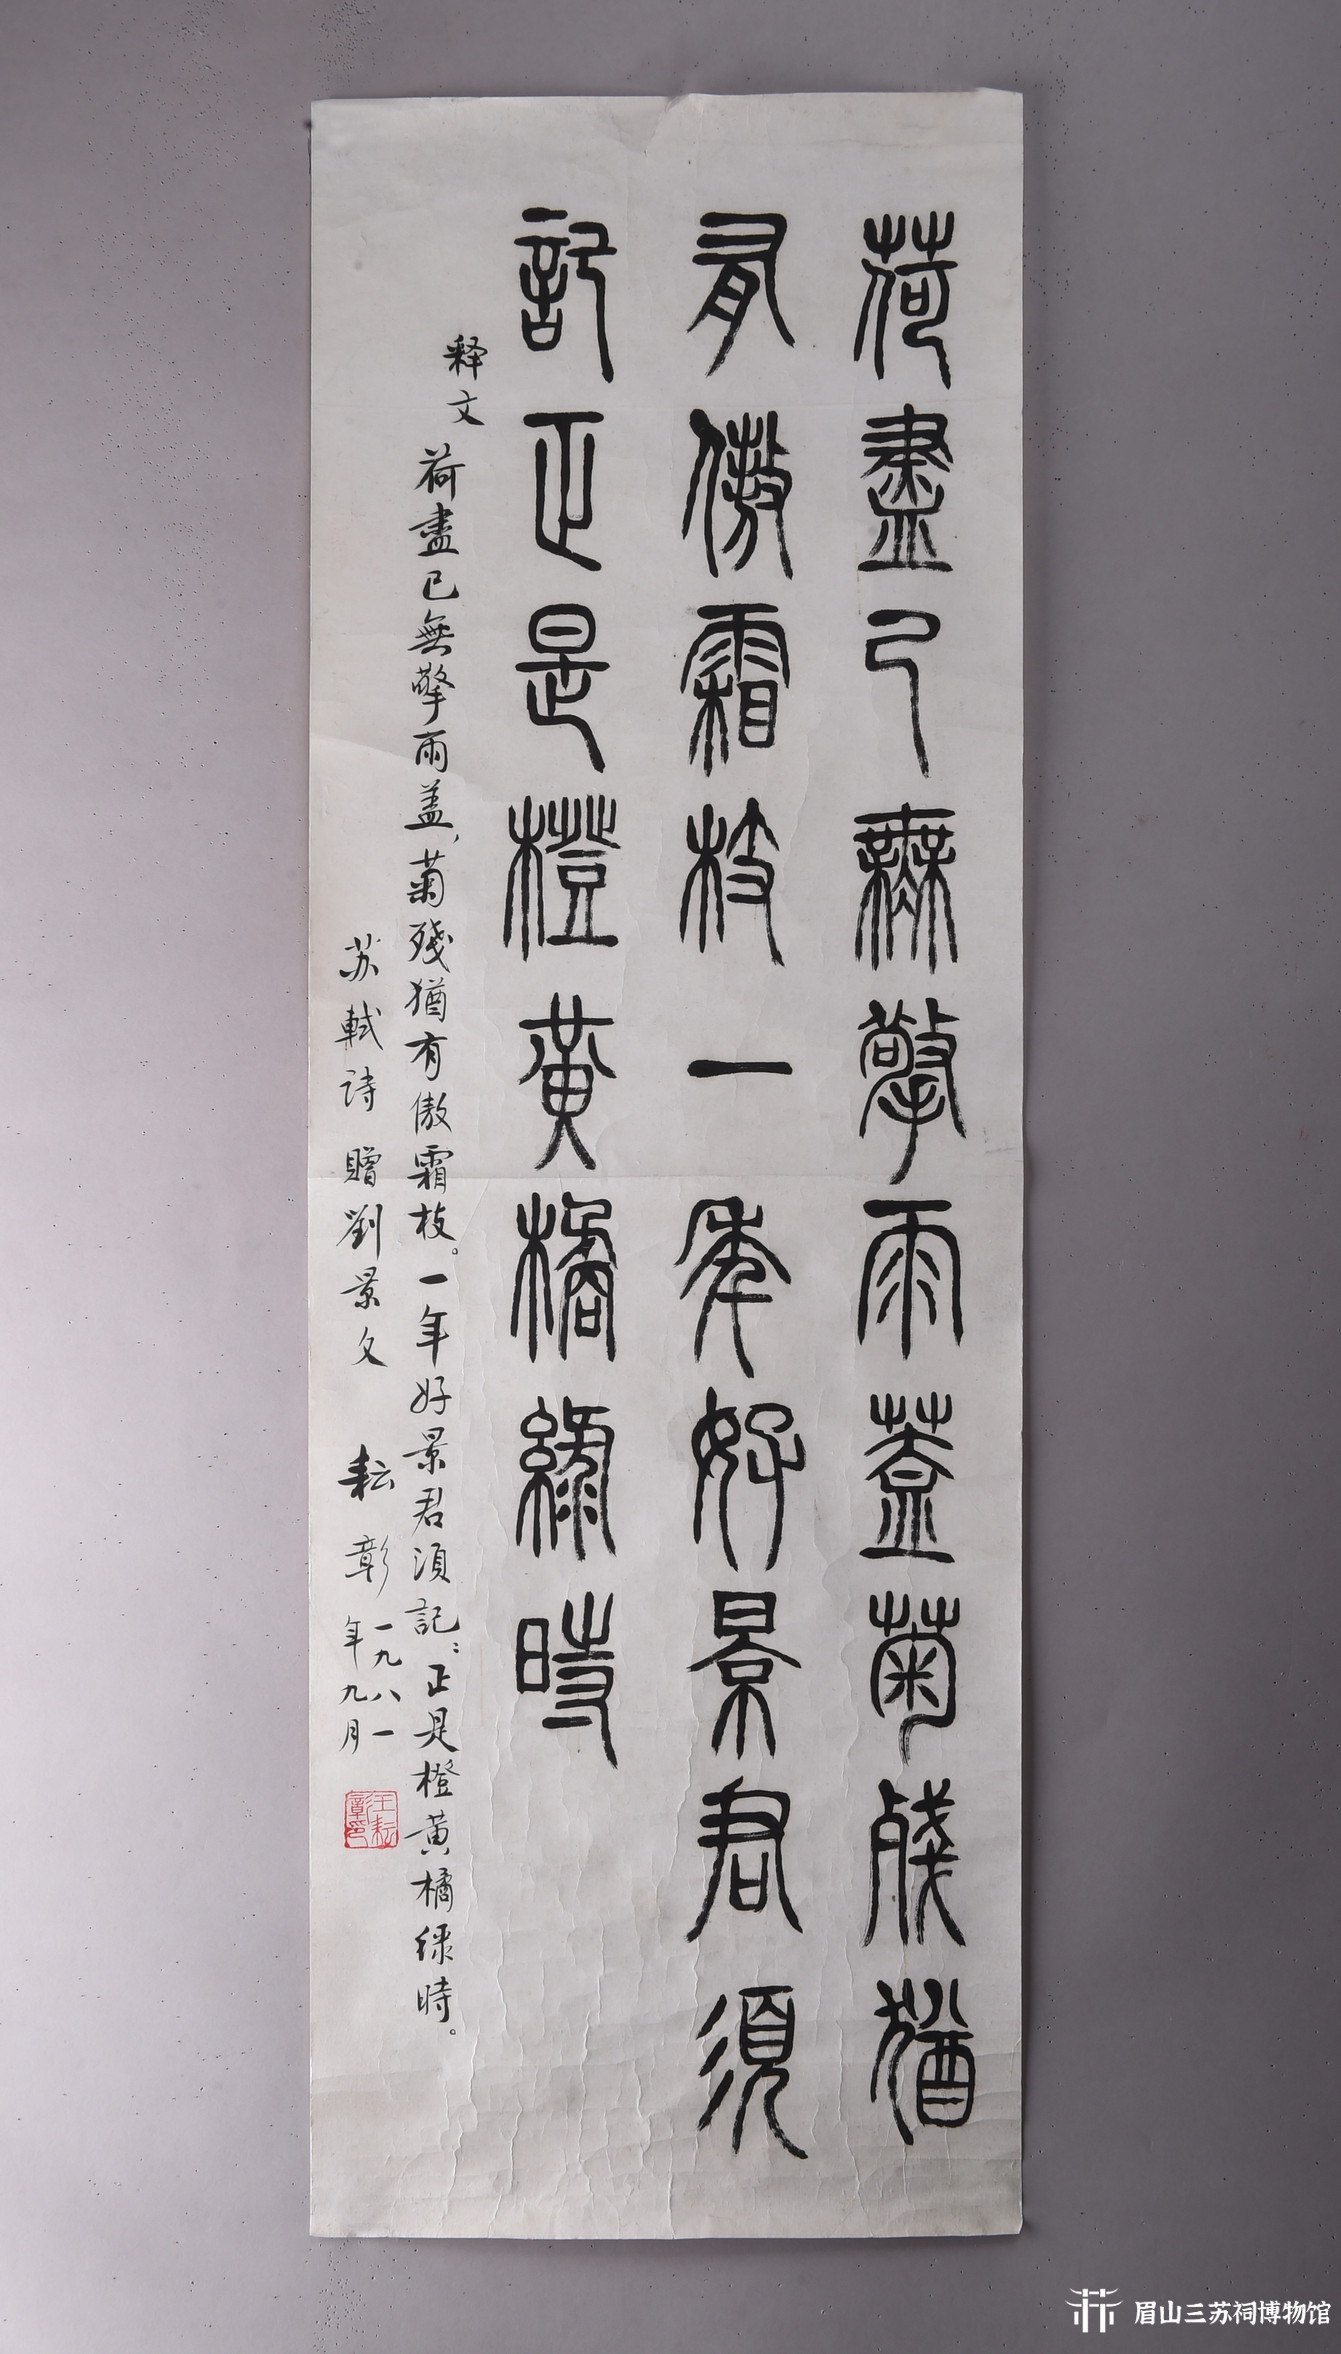 荷盡已無擎雨蓋菊殘猶
有傲霜枝一年好景君須
記正是橙黃橘綠時
释文
荷盡已無擎雨盖,菊殘猶有傲霜枝。一年好景君須記:正是橙黄橘绿時。
苏軾诗贈劉景文 耘彰 一九八一年九月
王耘章印
眉山三苏祠博物馆